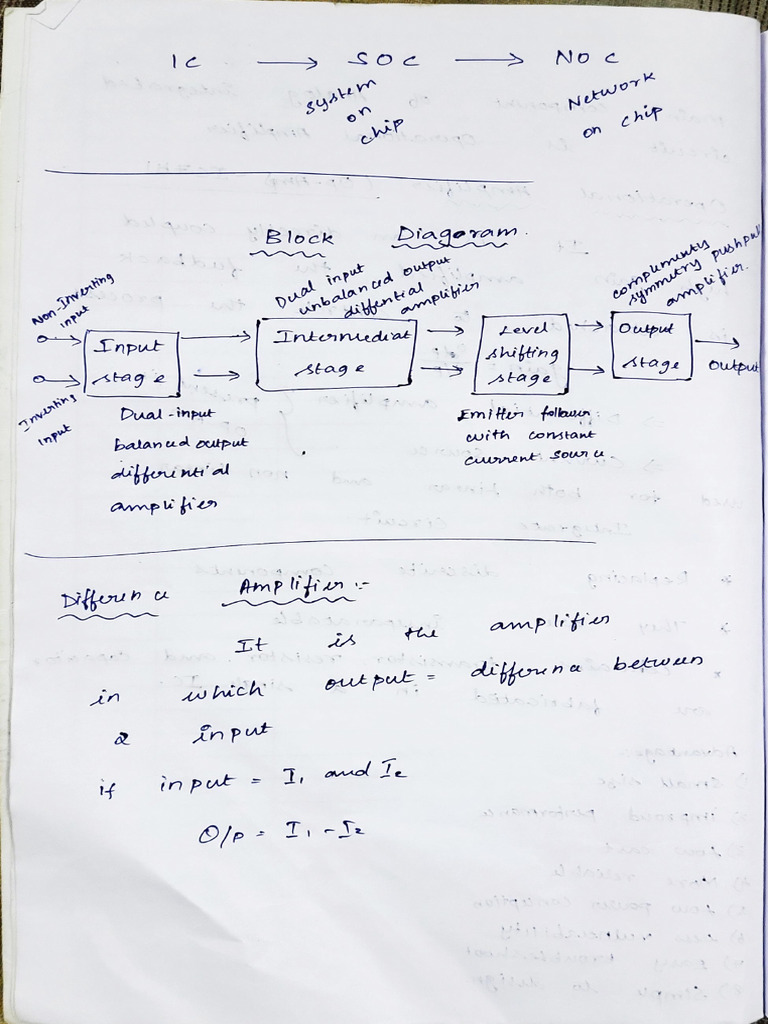 IC → SOC → NOC
system
on
chip
Network
on chip
Block Diagram.
Non-Inverting
input
Inverting
input
Input
stage
Dual-input
balanced output
differential
amplifier
Dual input
unbalanced output
diffential
amplifier
Intermediat
stage
Level
shifting
stage
Emitter follower
with constant
current source.
complementy
symmetry pushpull
amplifier.
Output
stage
Output
Difference Amplifier :-
It is the amplifier
in which output = difference between
2 input
if input = I1 and I2
O/p = I1 - I2